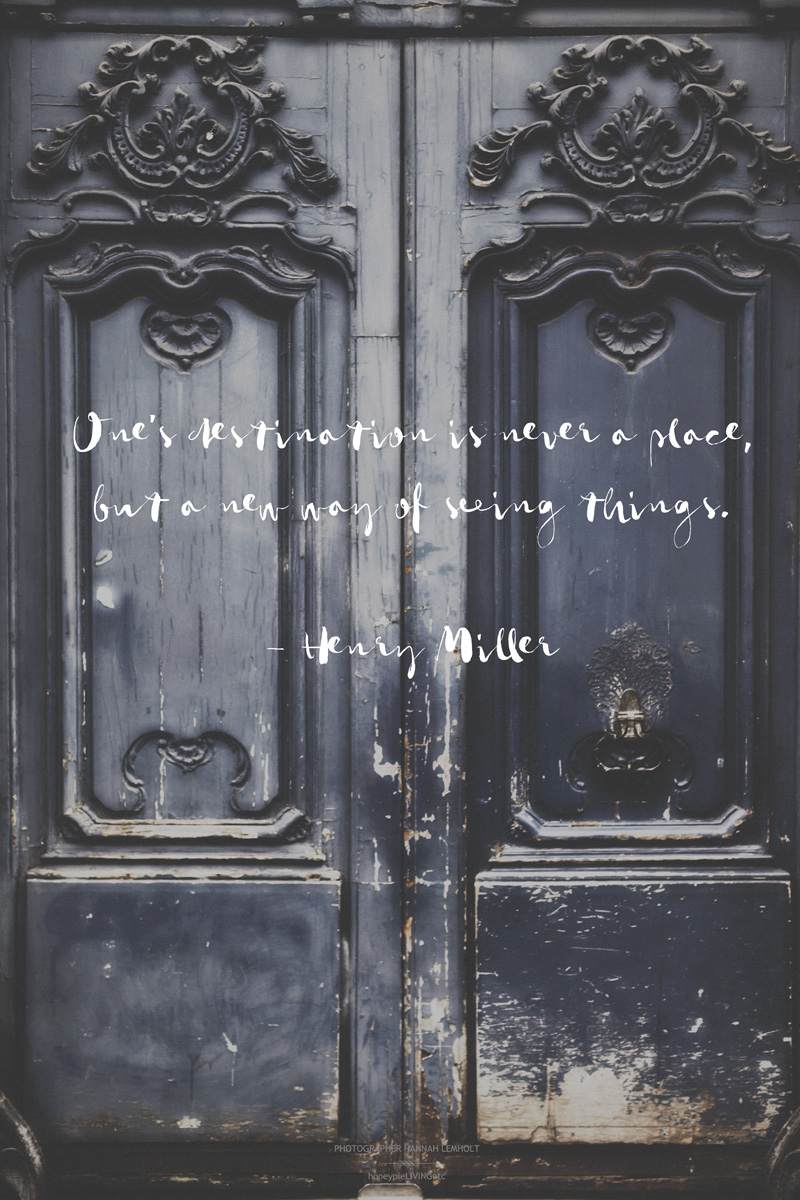 One's destination is never a place,
but a new way of seeing things.
- Henry Miller
PHOTOGRAPHER HANNAH LEMHOLT
honeypieLIVINGetc